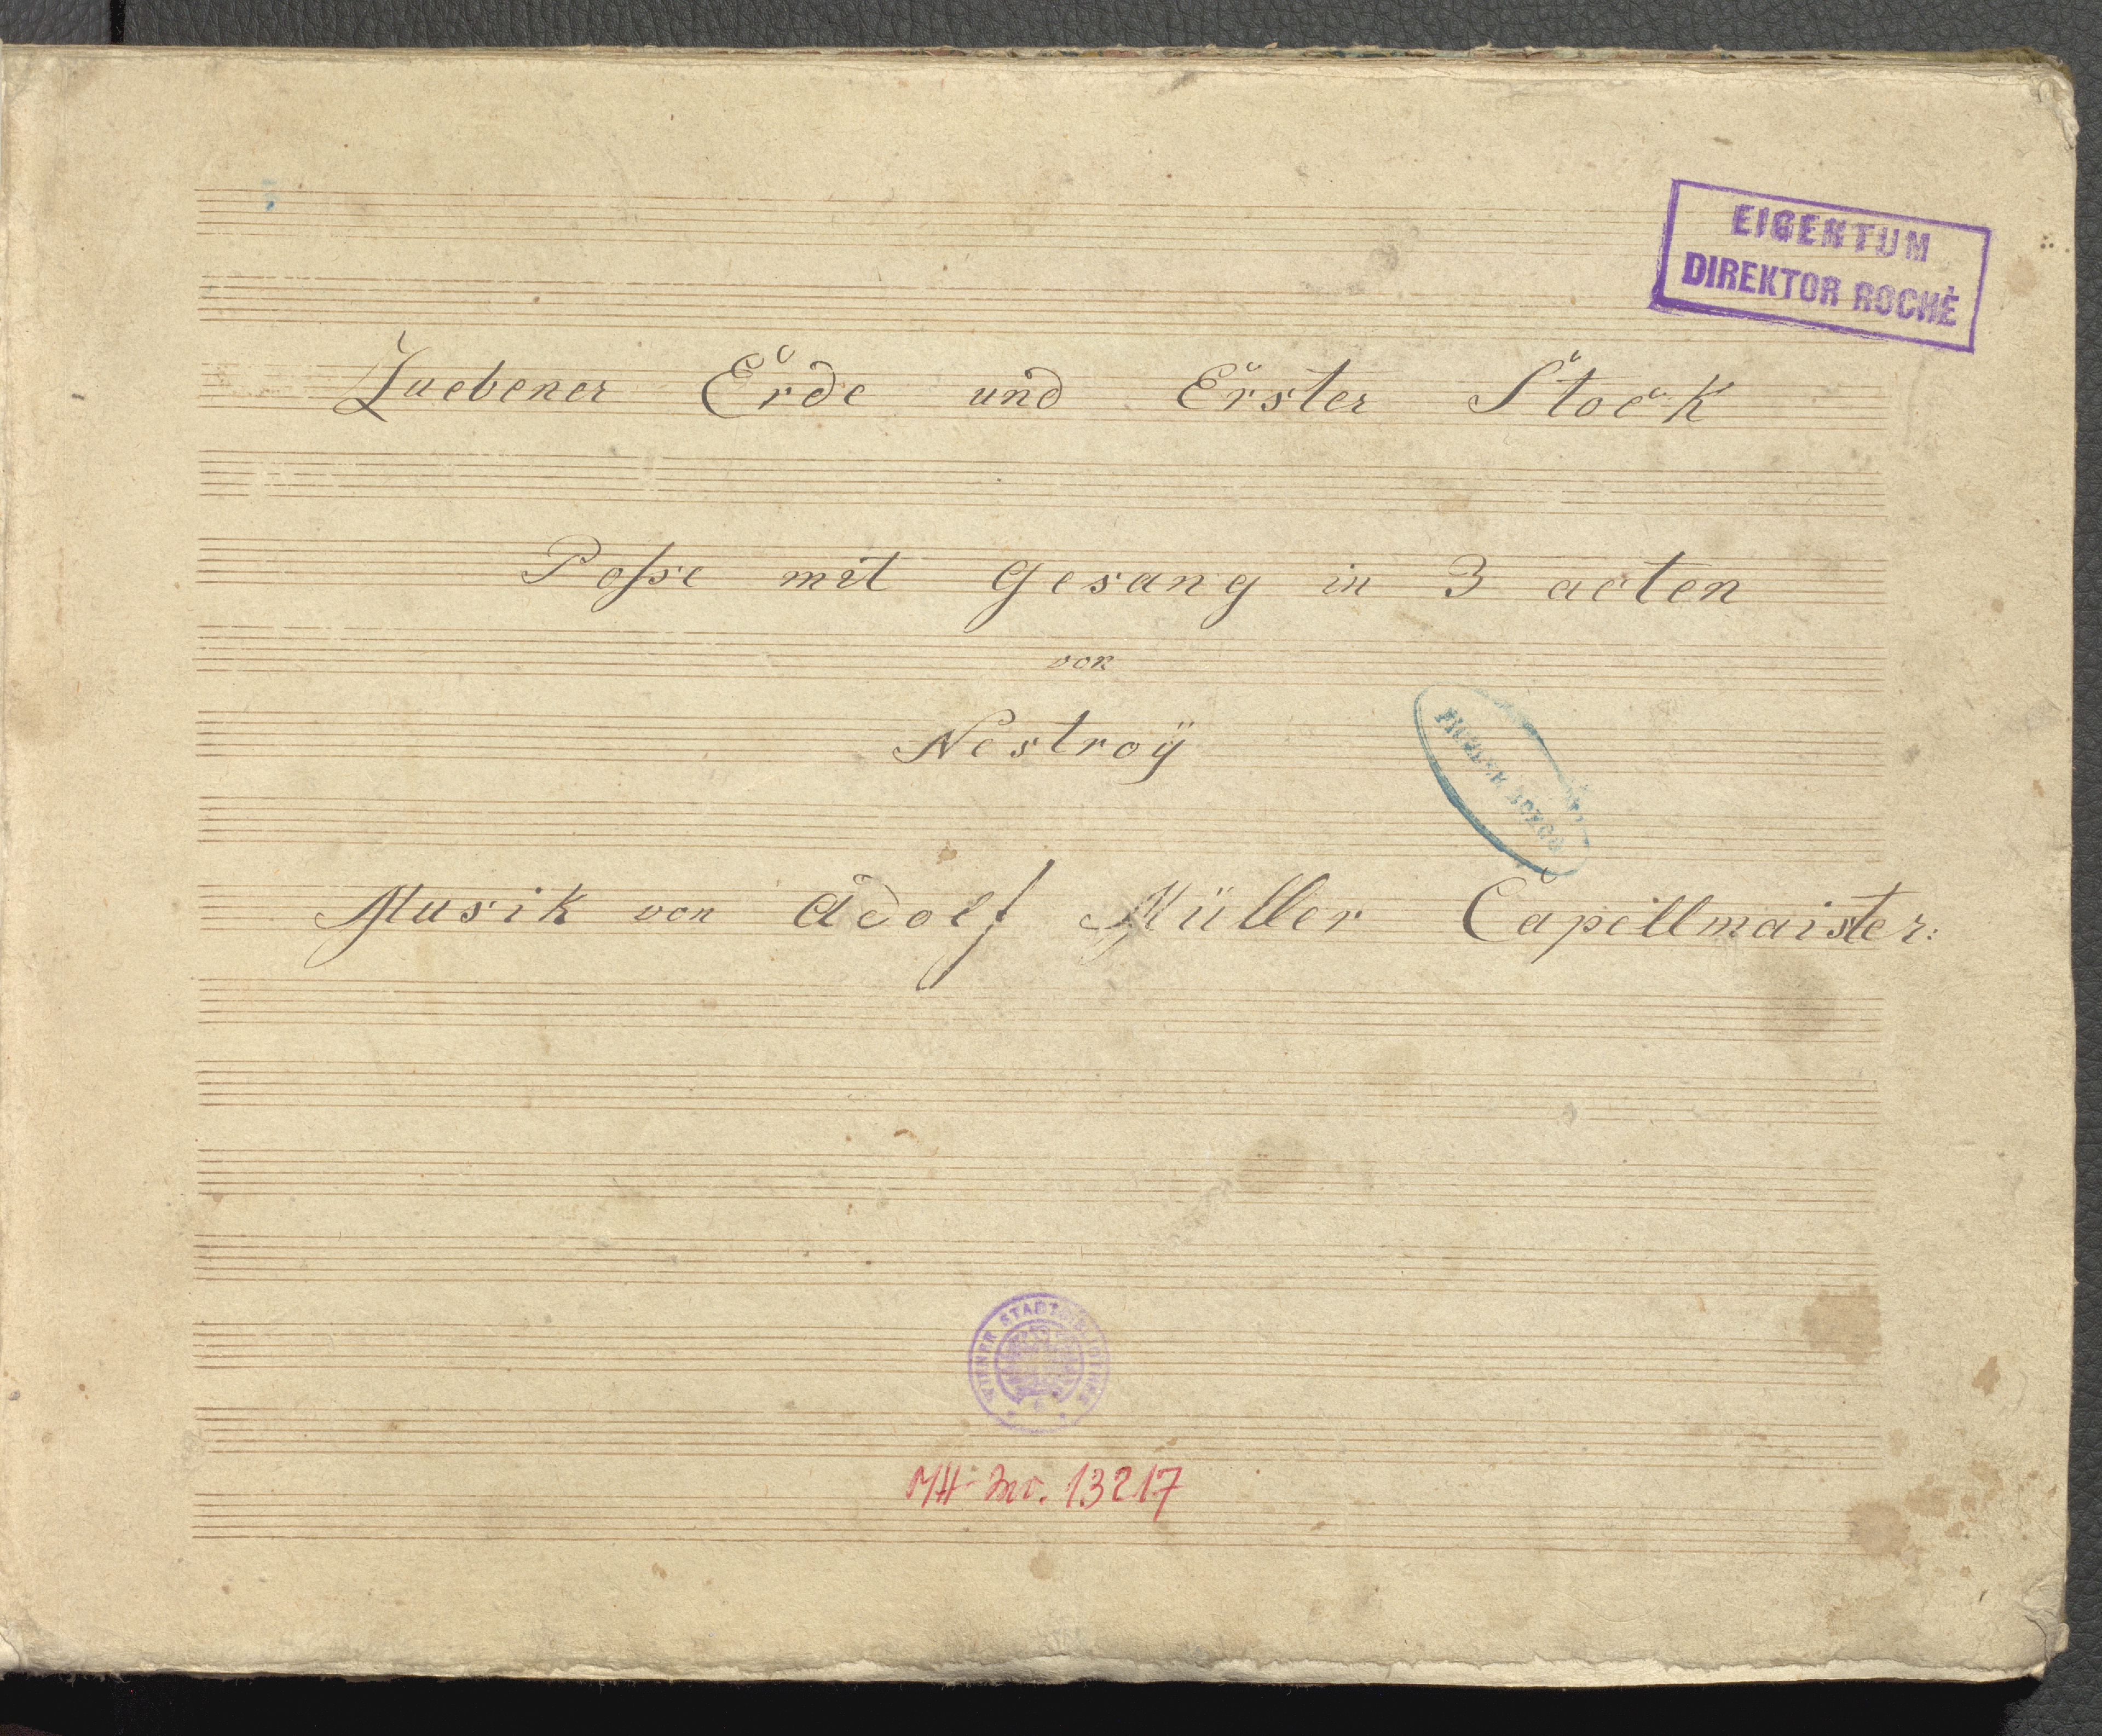 EIGENTUM
DIREKTOR ROCHÉ
Zuebener Erde und Erster Stock
Posse mit Gesang in 3 acten
von
Nestroÿ
Musik von Adolf Müller Capellmaister:
WIENER STADTBIBLIOTHEK
MH-Inv. 13217